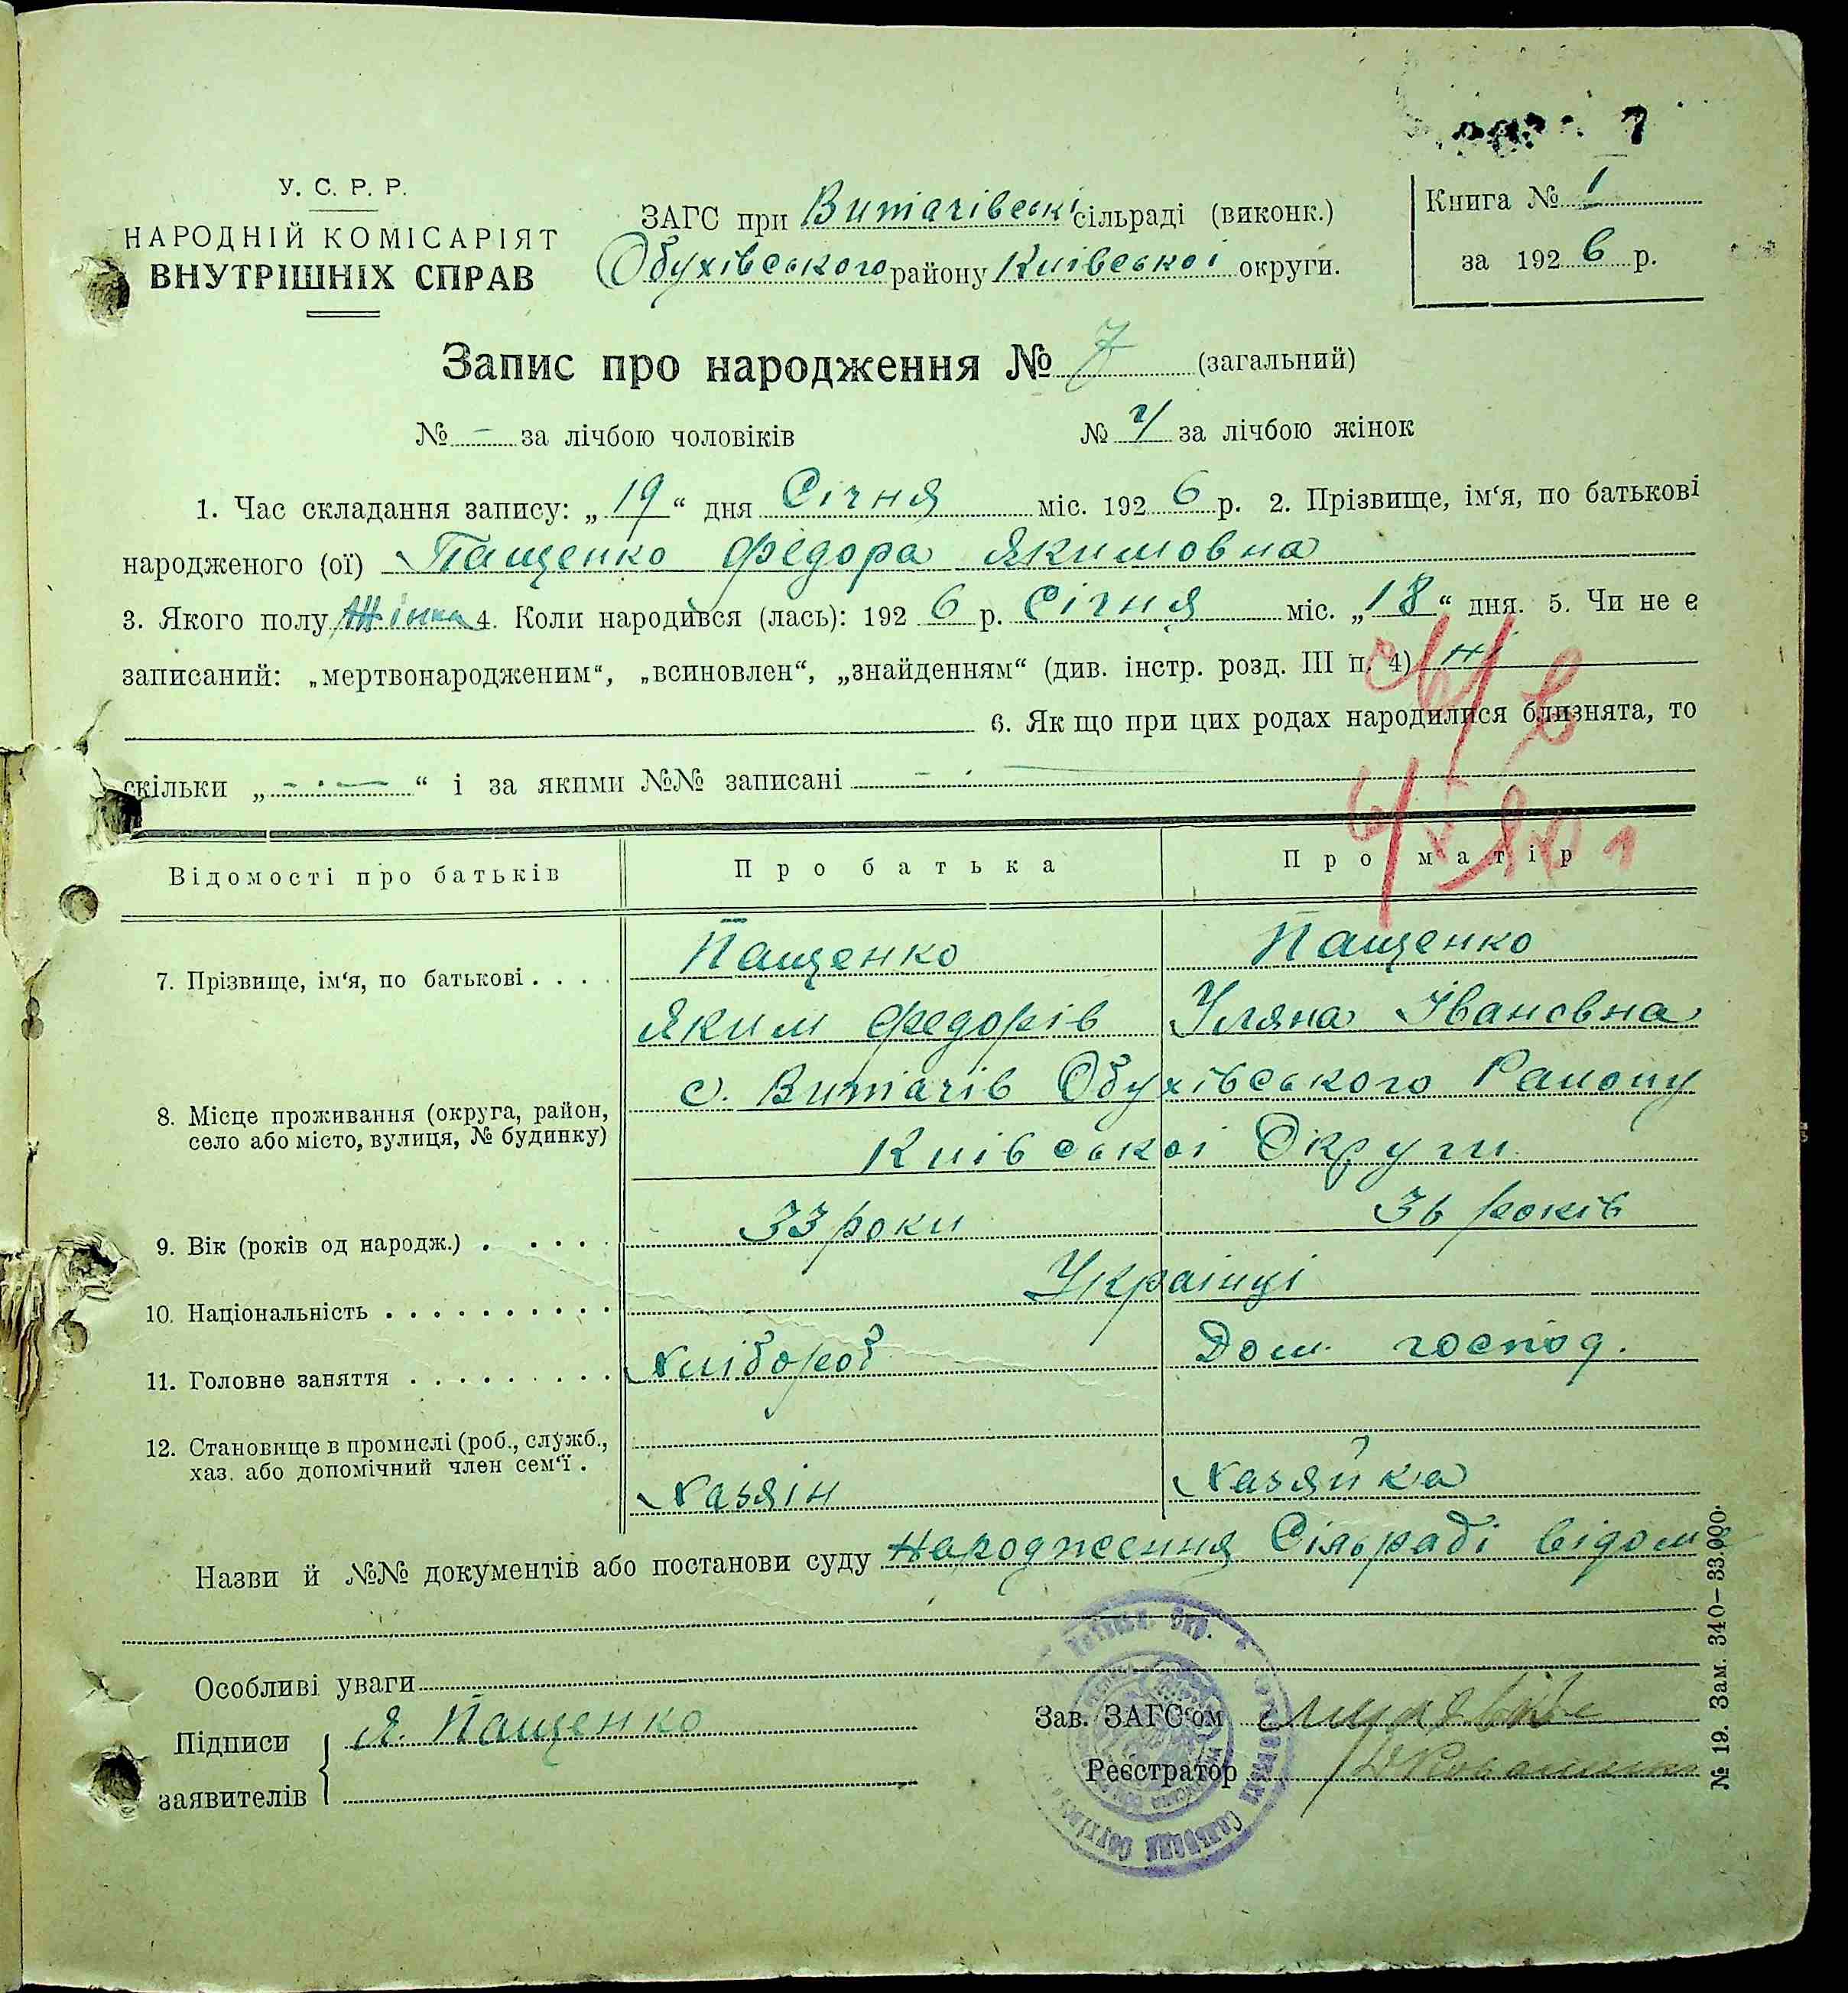 7
У. С. Р. Р.
НАРОДНІЙ КОМІСАРІЯТ
ВНУТРІШНІХ СПРАВ
ЗАГС при Витачівські сільраді (виконк.)
Обухівського району Київської округи.
Книга № 1
за 1926 р.
Запис про народження № 7 (загальний)
№ - за лічбою чоловіків № 4 за лічбою жінок
1. Час складання запису: „19“ дня Січня міс. 1926 р. 2. Прізвище, ім‘я, по батькові
народженого (ої) Пащенко Федора Якимовна
3. Якого полу Жінка 4. Коли народився (лась): 1926 р. Січня міс. „18“ дня. 5. Чи не є
записаний: „мертвонародженим“, „всиновлен“, „знайденням“ (див. інстр. розд. III п. 4) ні
6. Як що при цих родах народилися близнята, то
скільки „ - · — “ і за якими №№ записані - · —
Відомості про батьків Про батька Про матір
7. Прізвище, ім‘я, по батькові . . . . Пащенко Пащенко
Яким Федорів Уляна Івановна
8. Місце проживання (округа, район, село або місто, вулиця, № будинку) с. Витачів Обухівського Району
Київської Округи
9. Вік (років од народж.) . . . . . 33 роки 36 років
10. Національність . . . . . . . . . . Українці
11. Головне заняття . . . . . . . . . Хлібороб Дом. господ.
12. Становище в промислі (роб., служб.,
хаз. або допомічний член сем‘ї . Хазяін Хазяйка
Назви й №№ документів або постанови суду Народження Сільраді відоме
Особливі уваги
Підписи заявителів Я. Пащенко
Зав. ЗАГС‘ом
Реєстратор
№ 19. Зам. 340—33.000.